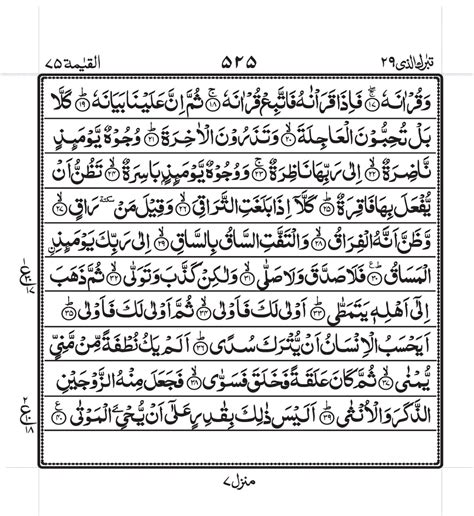 تبٰرك الذی ۲۹ ۵۲۵ القیٰمة ۷۵
وَقُرْاٰنَهٗ ﴿۱۷﴾ فَاِذَا قَرَاْنٰهُ فَاتَّبِعْ قُرْاٰنَهٗ ﴿۱۸﴾ ثُمَّ اِنَّ عَلَیْنَا بَیَانَهٗ ﴿۱۹﴾ كَلَّا
بَلْ تُحِبُّوْنَ الْعَاجِلَةَ ﴿۲۰﴾ وَتَذَرُوْنَ الْاٰخِرَةَ ﴿۲۱﴾ وُجُوْهٌ یَّوْمَىِٕذٍ
نَّاضِرَةٌ ﴿۲۲﴾ اِلٰى رَبِّهَا نَاظِرَةٌ ﴿۲۳﴾ وَوُجُوْهٌ یَّوْمَىِٕذٍۭ بَاسِرَةٌ ﴿۲۴﴾ تَظُنُّ اَنْ
یُّفْعَلَ بِهَا فَاقِرَةٌ ﴿۲۵﴾ كَلَّاۤ اِذَا بَلَغَتِ التَّرَاقِیَ ﴿۲۶﴾ وَقِیْلَ مَنْ سكتة رَاقٍ ﴿۲۷﴾
وَّظَنَّ اَنَّهُ الْفِرَاقُ ﴿۲۸﴾ وَالْتَفَّتِ السَّاقُ بِالسَّاقِ ﴿۲۹﴾ اِلٰى رَبِّكَ یَوْمَىِٕذِ
ن الْمَسَاقُ ﴿۳۰﴾ فَلَا صَدَّقَ وَلَا صَلّٰى ﴿۳۱﴾ وَلٰكِنْ كَذَّبَ وَتَوَلّٰى ﴿۳۲﴾ ثُمَّ ذَهَبَ
اِلٰۤى اَهْلِهٖ یَتَمَطّٰى ﴿۳۳﴾ اَوْلٰى لَكَ فَاَوْلٰى ﴿۳۴﴾ ثُمَّ اَوْلٰى لَكَ فَاَوْلٰى ﴿۳۵﴾
اَیَحْسَبُ الْاِنْسَانُ اَنْ یُّتْرَكَ سُدًى ﴿۳۶﴾ اَلَمْ یَكُ نُطْفَةً مِّنْ مَّنِیٍّ
یُّمْنٰى ﴿۳۷﴾ ثُمَّ كَانَ عَلَقَةً فَخَلَقَ فَسَوّٰى ﴿۳۸﴾ فَجَعَلَ مِنْهُ الزَّوْجَیْنِ
الذَّكَرَ وَالْاُنْثٰى ﴿۳۹﴾ اَلَیْسَ ذٰلِكَ بِقٰدِرٍ عَلٰۤى اَنْ یُّحْیِۦَ الْمَوْتٰى ﴿۴۰﴾
منزل ۷